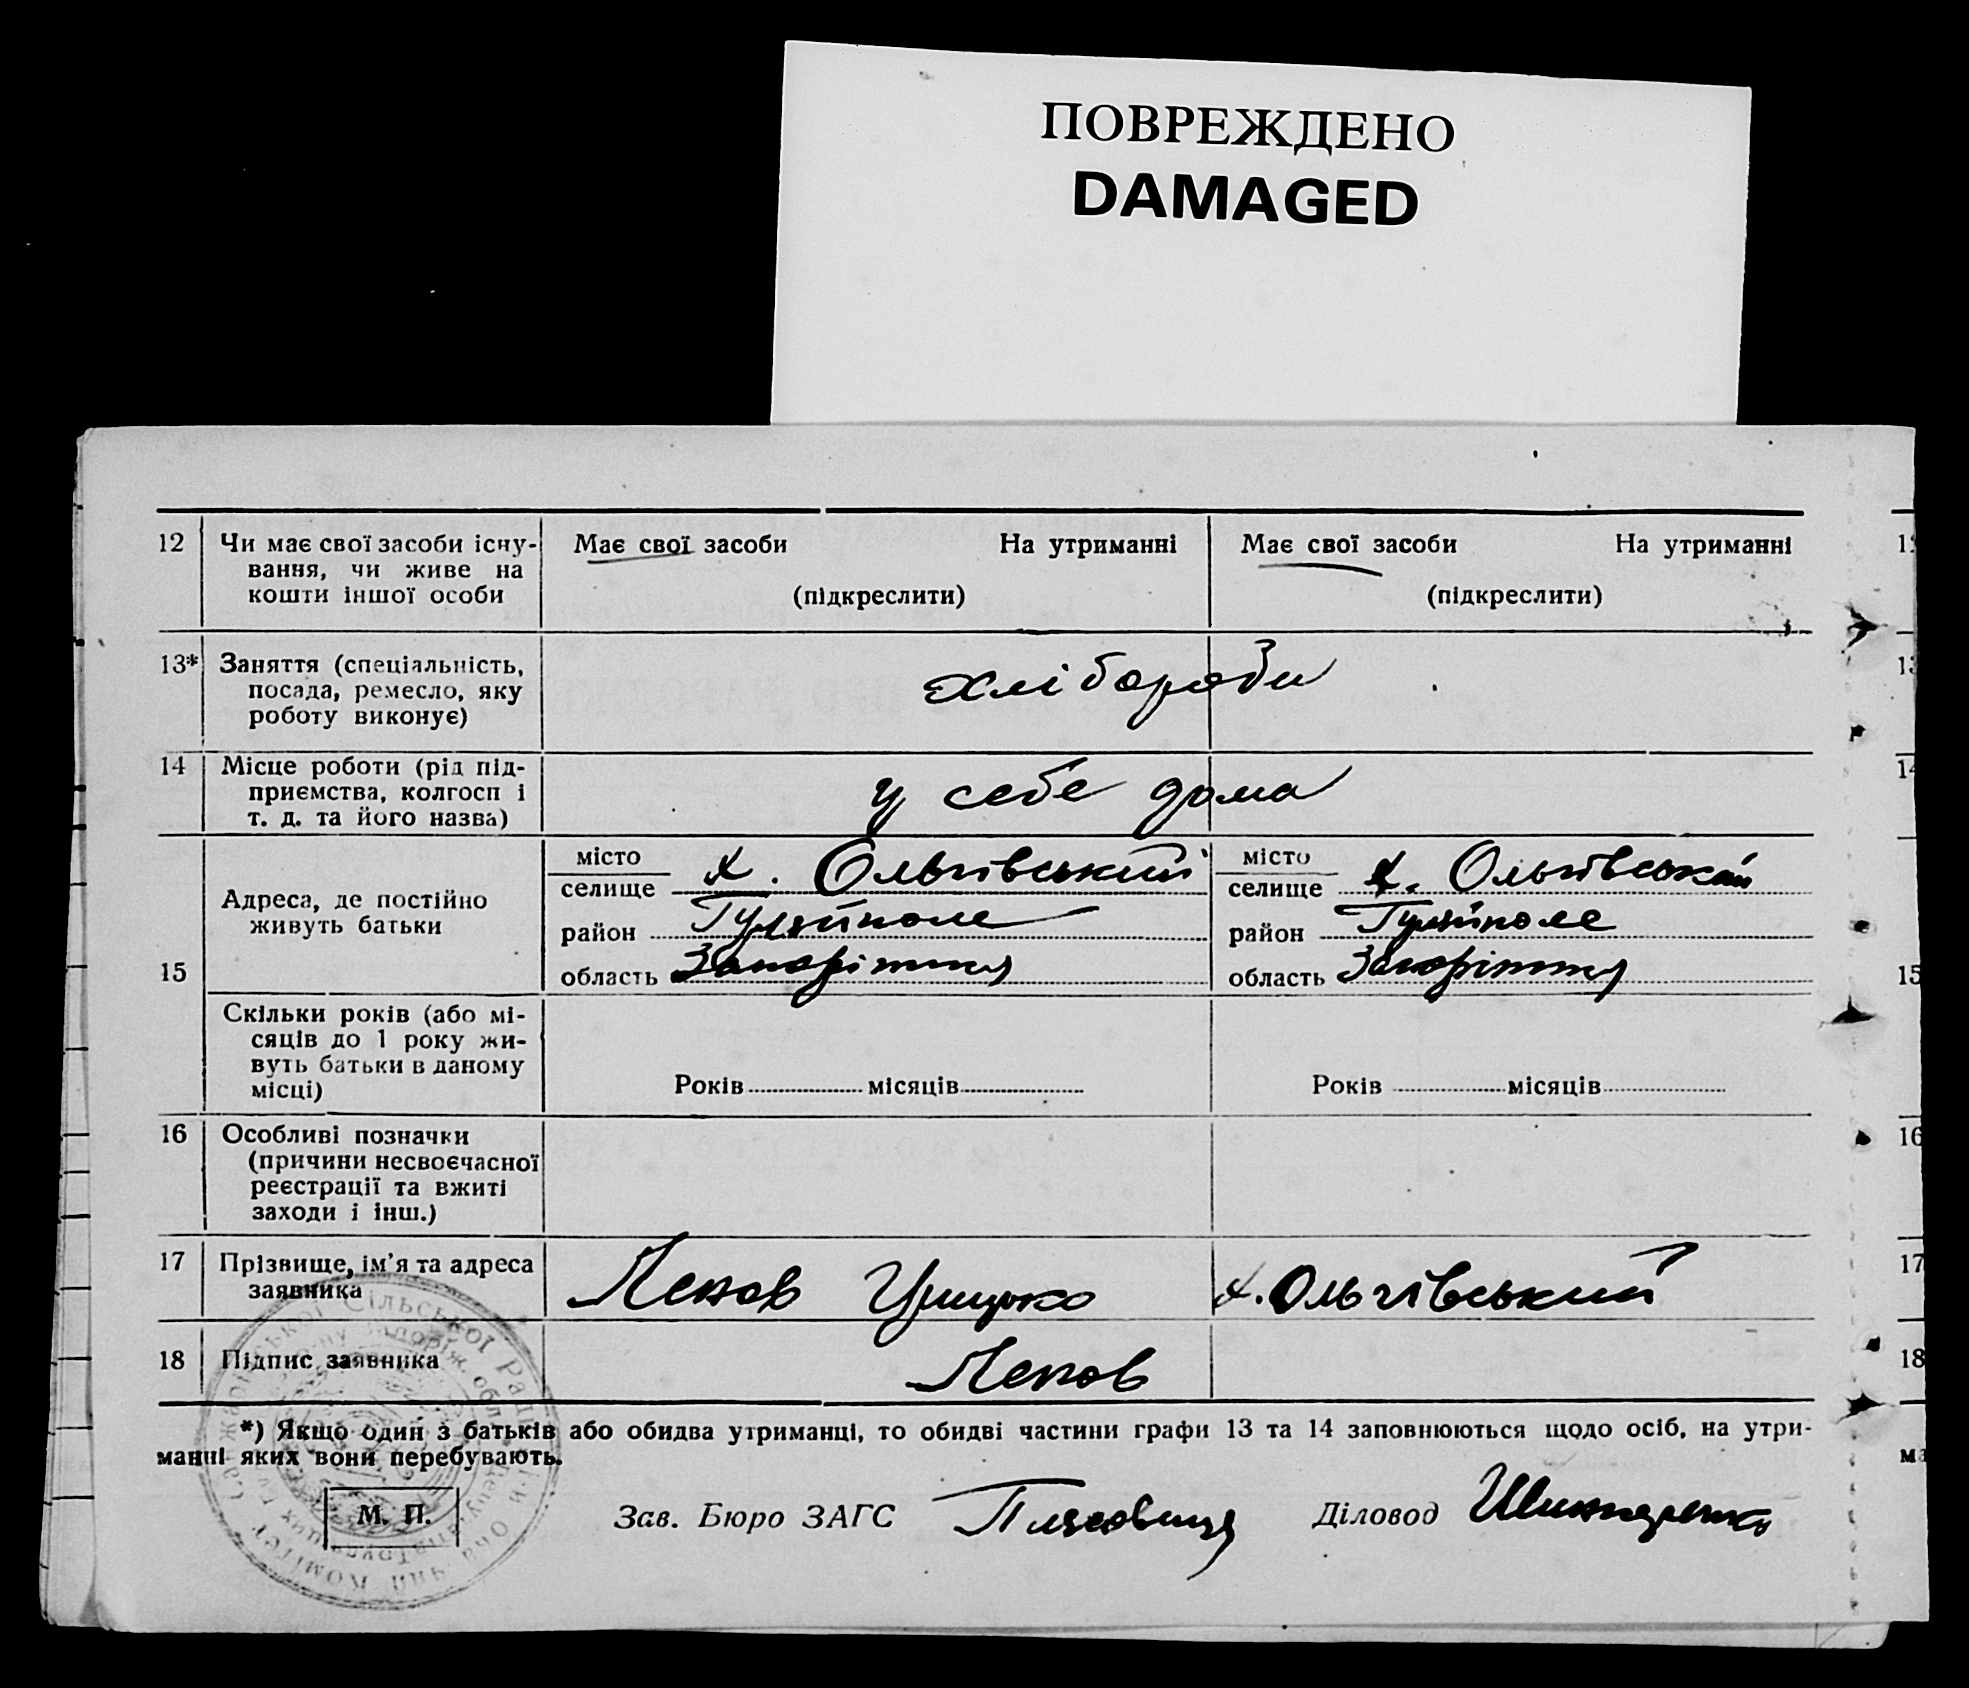 ПОВРЕЖДЕНО
DAMAGED
12 Чи має свої засоби існу-
вання, чи живе на
кошти іншої особи
Має свої засоби На утриманні
(підкреслити)
Має свої засоби На утриманні
(підкреслити)
13* Заняття (спеціальність,
посада, ремесло, яку
роботу виконує)
хлібороби
14 Місце роботи (рід під-
приємства, колгосп і
т. д. та його назва)
у себе дома
15
Адреса, де постійно
живуть батьки
місто
селище х. Ольгівський
район Гуляйполе
область Запоріжжя
місто
селище х. Ольгівський
район Гуляйполе
область Запоріжжя
Скільки років (або мі-
сяців до 1 року жи-
вуть батьки в даному
місці)
Років місяців
Років місяців
16 Особливі позначки
(причини несвоєчасної
реєстрації та вжиті
заходи і інш.)
17 Прізвище, ім'я та адреса
заявника
Лепов Грицько х. Ольгівський
18 Підпис заявника
Лепов
*) Якщо один з батьків або обидва утриманці, то обидві частини графи 13 та 14 заповнюються щодо осіб, на утри-
манні яких вони перебувають.
М. П.
Зав. Бюро ЗАГС
Діловод
Сільської Ради
Комітет
12
13
14
15
16
17
18